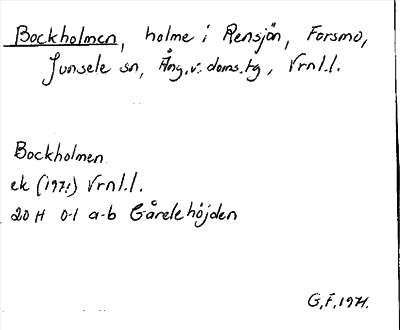 Bockholmen, holme i Rensjön, Forsmo,
Junsele sn, Ång. v. doms. tg, Vrnl.l.
Bockholmen
ek (1971) Vrnl.l.
20 H 0-1 a-b Gårelehöjden
G.F. 1971.